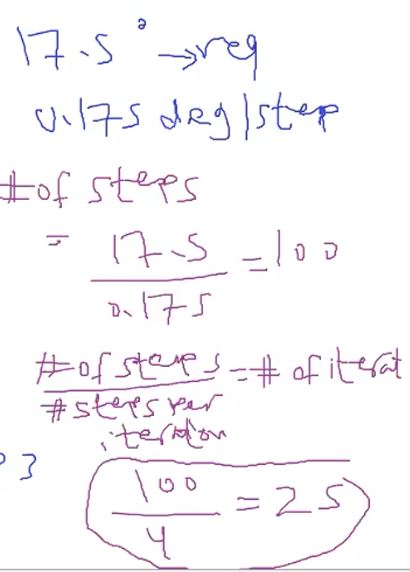 17.5° → req
0.175 deg/step
# of steps
= 17.5 / 0.175 = 100
# of steps / # steps per iteration = # of iterat
3
100 / 4 = 25